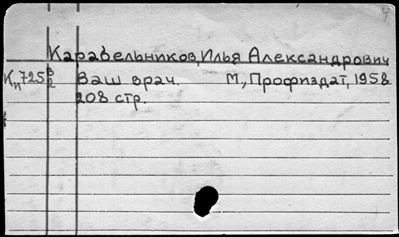 Карабельников, Илья Александрович
Ки 725 8/2 Ваш врач. М., Профиздат, 1958
208 стр.